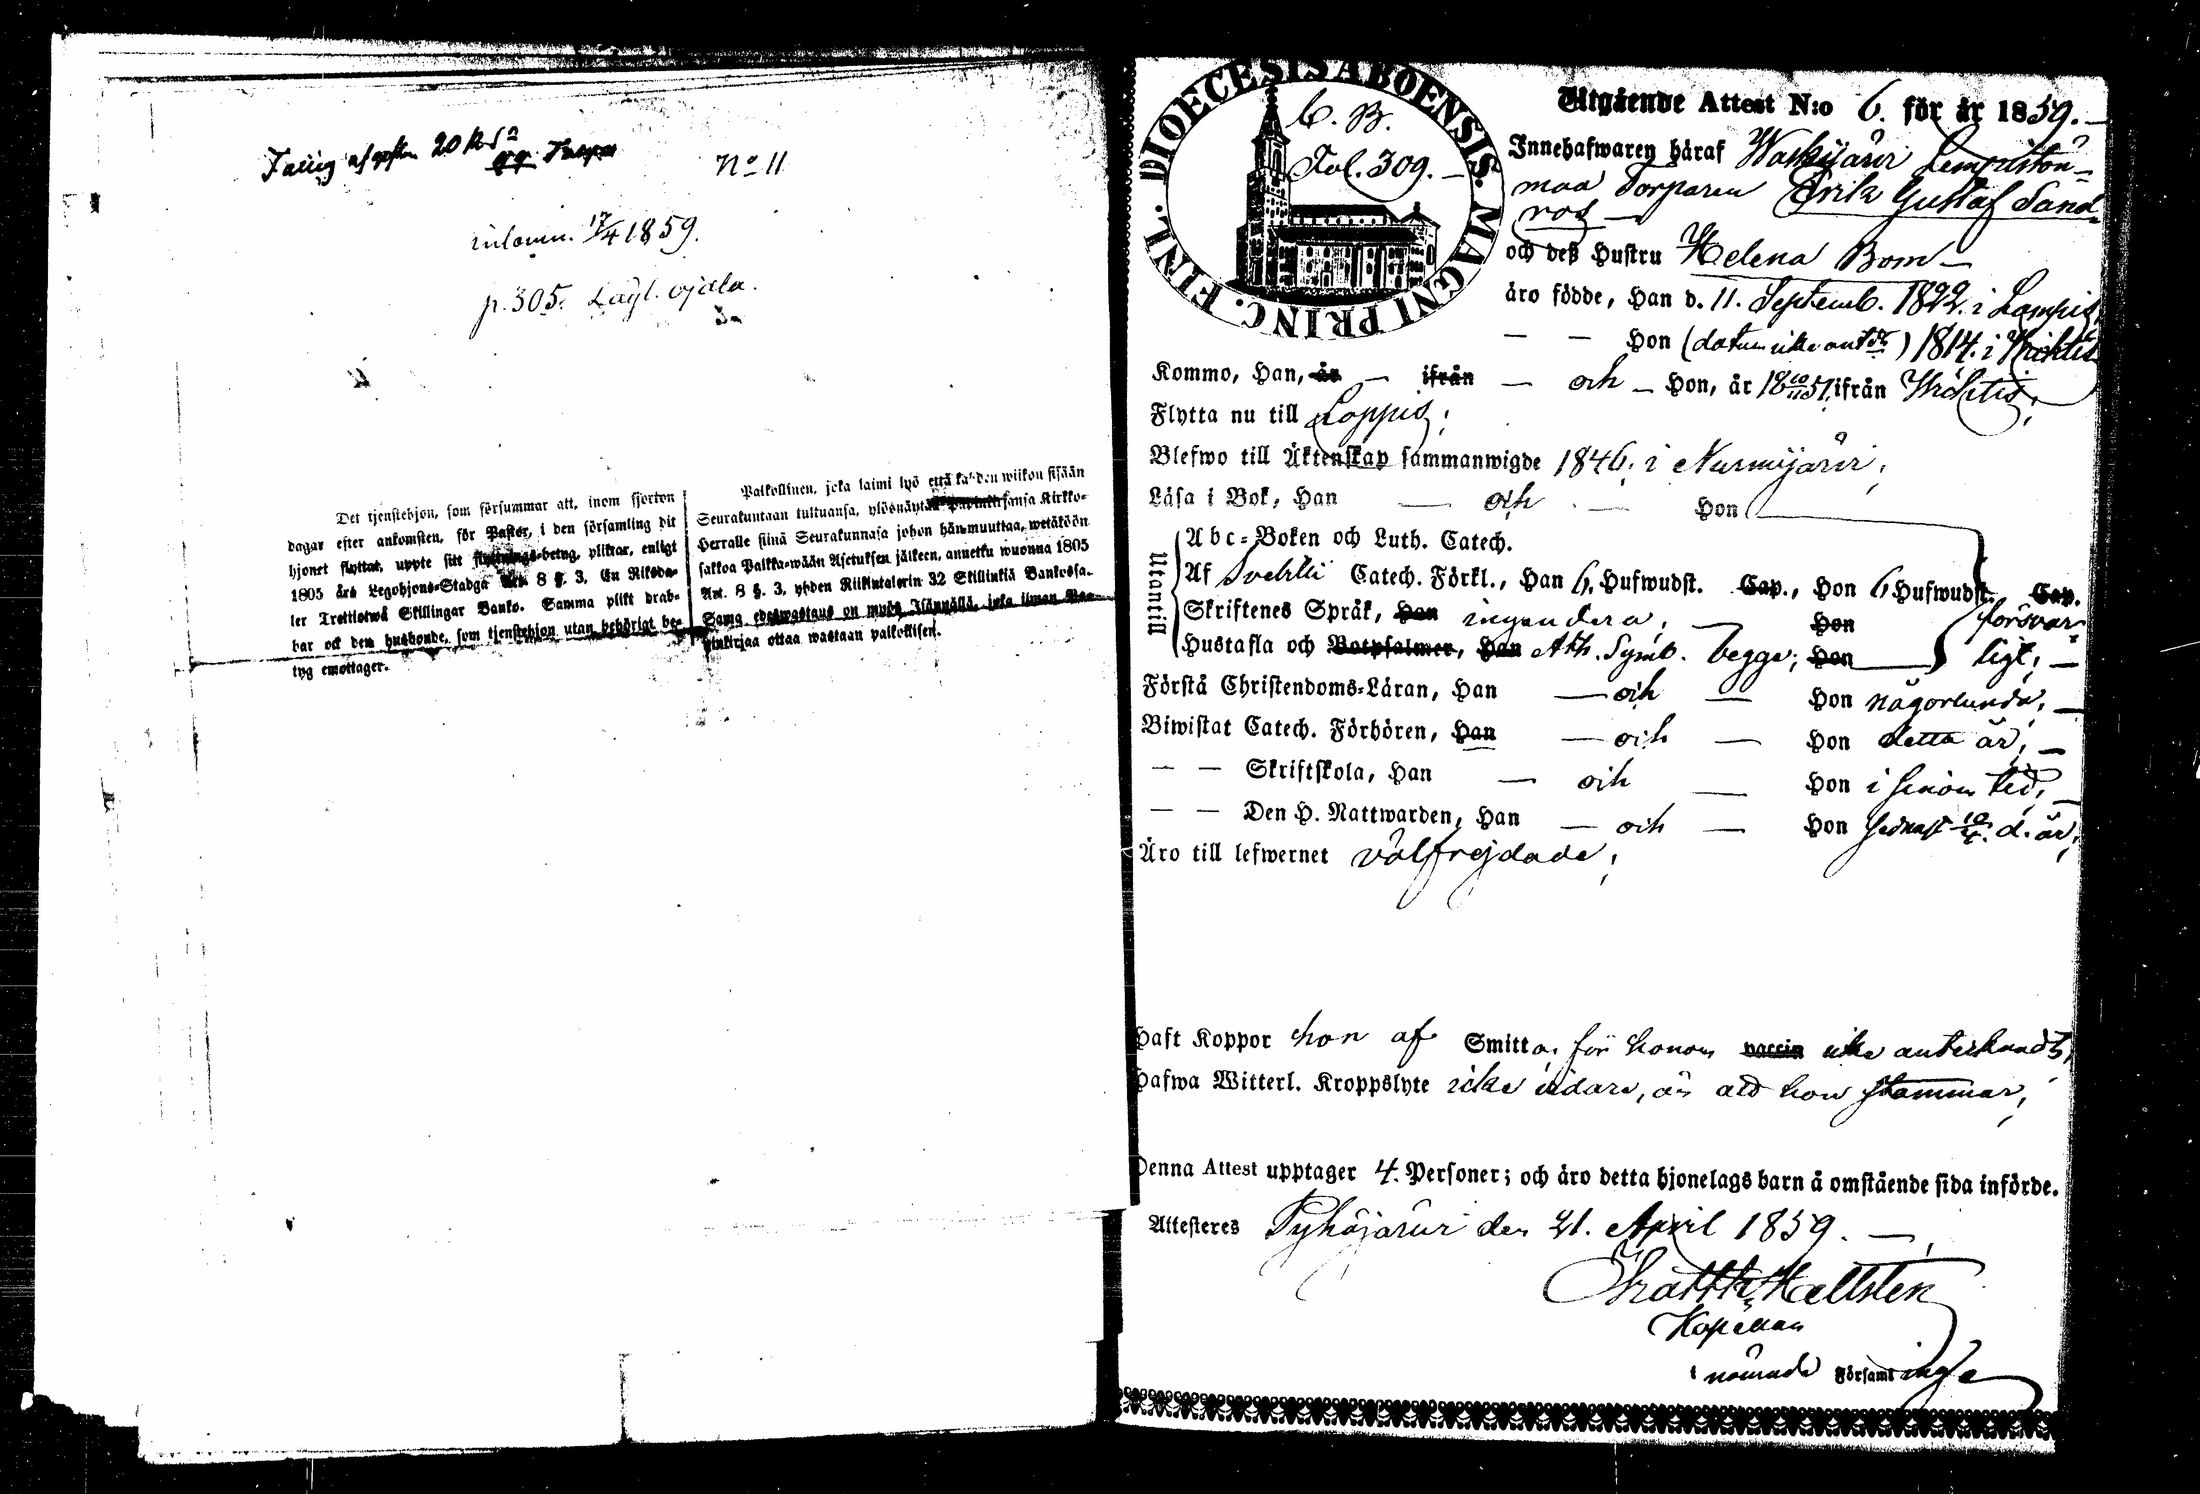 20
No 11
inlemn. 17/4 1859.
p. 305. Läyl. ojala.
Det tjenstehjon, som försummar att, inom fjorton
dagar efter ankomsten, för Pastor, i den församling dit
hjonet flyttat, uppte sitt flyttnings-betyg, pliktar, enligt
1805 års Legohjons-Stadga Art. 8 §. 3, En Riksda-
ler Trettiotwå Skillingar Banko. Samma plikt drab-
bar ock den husbonde, som tjenstehjon utan behörigt be-
tyg emottager.
Palkollinen, joka laimi lyö että kahden wiikon sisään
Seurakuntaan tultuansa, ylösnäyttää Kirkko-
Herralle siinä Seurakunnasa johon hän muuttaa, wetäköön
sakkoa Palkka-wään Asetuksen jälkeen, annettu wuonna 1805
Art. 8 §. 3, yhden Riikintalerin 32 Skillinkiä Bankossa.
Sama edeswastaus on myös Isännällä, joka ilman Pa-
pinkirjaa ottaa wastaan palkollisen.
FINL. DIOECESIS ABOENSIS. MAGNI PRINC.
C. B.
Fol. 309. —
Utgående Attest N:o 6. för år 1859. —
Innehafwaren häraf Waskijärvi Lempistön-
maa Torparen Erik Gustaf Sand-
ros —
och deß Hustru Helena Bom —
äro födde, Han d. 11. Septemb. 1822. i Lampis,
— — Hon (datum icke ant.dt) 1814. i Wichtis
Kommo, Han, år — ifrån — och — Hon, år 18 10/11 51. ifrån Wichtis;
Flytta nu till Loppis;
Blefwo till Äktenskap sammanwigde 1846. i Nurmijärvi;
Läsa i Bok, Han — och — Hon
Utantill
Abc-Boken och Luth. Catech.
Af Svebilii Catech. Förkl., Han 6. Hufwudst. Cap., Hon 6 Hufwudst. Cap.
Skriftenes Språk, Han ingendera, — Hon försvar-
Hustafla och Botpsalmer, Han Ath. Symb. begge; Hon ligt; —
Förstå Christendoms-Läran, Han — och — Hon någorlunda, —
Biwistat Catech. Förhören, Han — och — Hon detta år, —
— — Skriftskola, Han — och — Hon i sinom tid, —
— — Den H. Nattwarden, Han — och — Hon sednast 10/4. d. år,
Äro till lefwernet välfrejdade;
Haft Koppor hon af Smitta, för honom vaccin icke antecknadt,
Hafwa Witterl. Kroppslyte icke vidare, än att hon stammar,
Denna Attest upptager 4. Personer; och äro detta hjonelags barn å omstående sida införde.
Attesteras Pyhäjärvi den 21. April 1859. —
Matth. Hellsten
Kapellan
i nämnde Församlinge